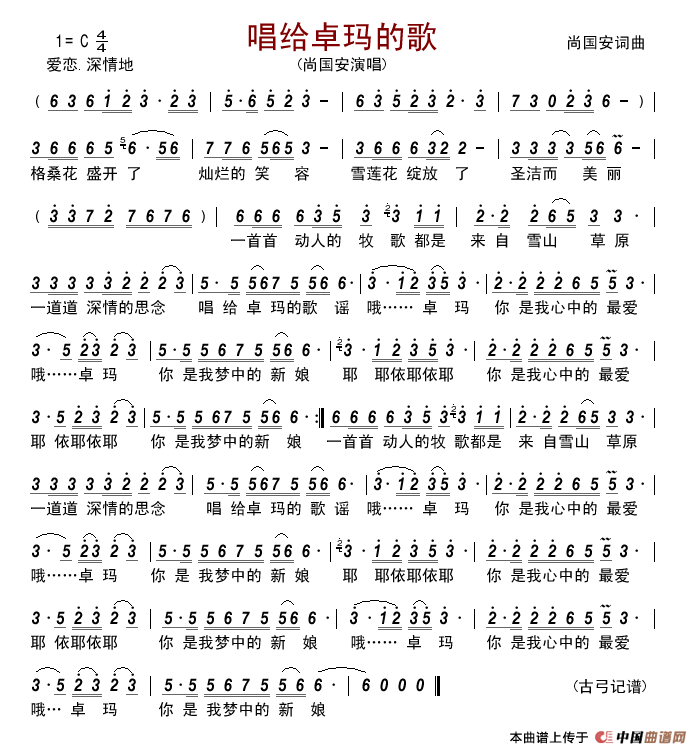 唱给卓玛的歌
1= C 4/4
尚国安词曲
爱恋.深情地
(尚国安演唱)
( 6 3 6 1 2 3 · 2 3 | 5 · 6 5 2 3 - | 6 3 5 2 3 · 2 3 - | 7 3 0 2 3 6 - ) |
3 6 6 6 5 5 6 · 5 6 | 7 7 6 5 6 5 3 - | 3 6 6 6 6 3 2 2 - | 3 3 3 3 5 6 6 - |
格桑花 盛开 了 灿烂的 笑 容 雪莲花 绽放 了 圣洁而 美 丽
( 3 3 7 2 7 6 7 6 ) | 6 6 6 6 3 5 3 2 3 1 1 | 2 · 2 2 6 5 3 3 |
一首首 动人的 牧 歌 都是 来 自 雪山 草 原
3 3 3 3 3 3 2 2 2 3 | 5 · 5 5 6 7 5 5 6 6 · | 3 · 1 2 3 5 3 · | 2 · 2 2 2 2 6 5 5 3 · |
一道道 深情的思念 唱 给 卓 玛的歌 谣 哦…… 卓 玛 你 是我心中的 最爱
3 · 5 2 3 2 3 | 5 · 5 5 6 7 5 5 6 6 · | 2 3 · 1 2 3 5 3 · | 2 · 2 2 2 2 6 5 5 3 · |
哦……卓 玛 你 是我梦中的 新 娘 耶 耶依耶依耶 你 是我心中的 最爱
3 · 5 2 3 2 3 | 5 · 5 5 6 7 5 5 6 6 · :| 6 6 6 6 3 5 3 2 3 1 1 | 2 · 2 2 6 5 3 3 |
耶 依耶依耶 你 是我梦中的新 娘 一首首 动人的牧 歌都是 来 自雪山 草原
3 3 3 3 3 3 2 2 2 3 | 5 · 5 5 6 7 5 5 6 6 · | 3 · 1 2 3 5 3 · | 2 · 2 2 2 2 6 5 5 3 · |
一道道 深情的思念 唱 给 卓 玛的 歌 谣 哦…… 卓 玛 你 是我心中的 最爱
3 · 5 2 3 2 3 | 5 · 5 5 6 7 5 5 6 6 · | 2 3 · 1 2 3 5 3 · | 2 · 2 2 2 2 6 5 5 3 · |
哦……卓 玛 你 是 我梦中的 新 娘 耶 耶依耶依耶 你 是我心中的 最爱
3 · 5 2 3 2 3 | 5 · 5 5 6 7 5 5 6 6 · | 3 · 1 2 3 5 3 · | 2 · 2 2 2 2 6 5 5 3 · |
耶 依耶依耶 你 是 我梦中的 新 娘 哦…… 卓 玛 你 是我心中的 最爱
3 · 5 2 3 2 3 | 5 · 5 5 6 7 5 5 6 6 · | 6 0 0 0 ‖
(古弓记谱)
哦… 卓 玛 你 是 我梦中的 新 娘
本曲谱上传于 中国曲谱网